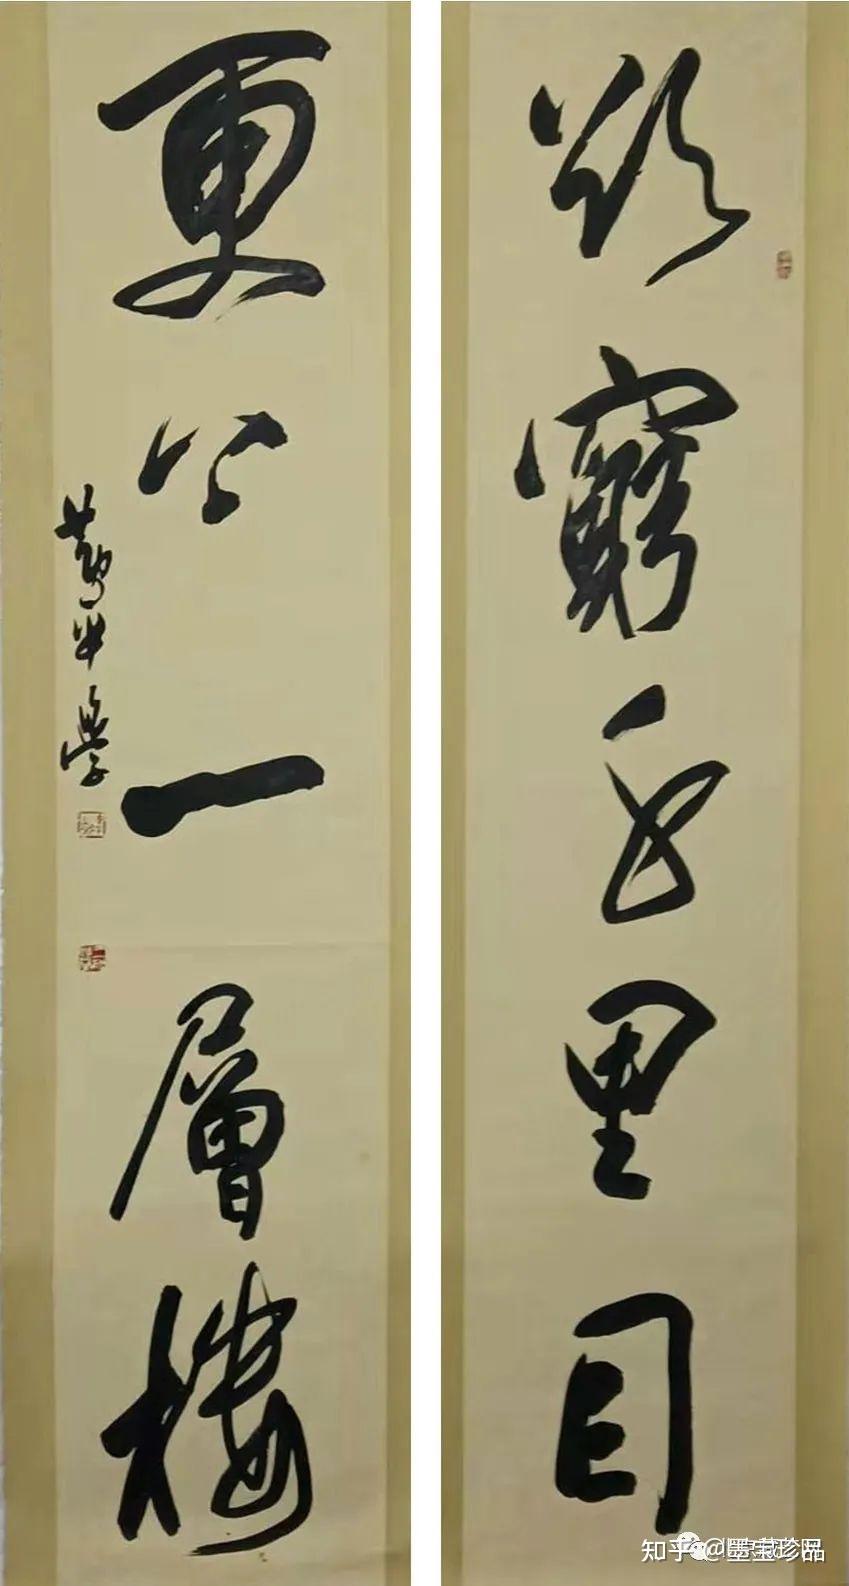 欲窮千里目
更上一層樓
知乎 @墨宝珍品